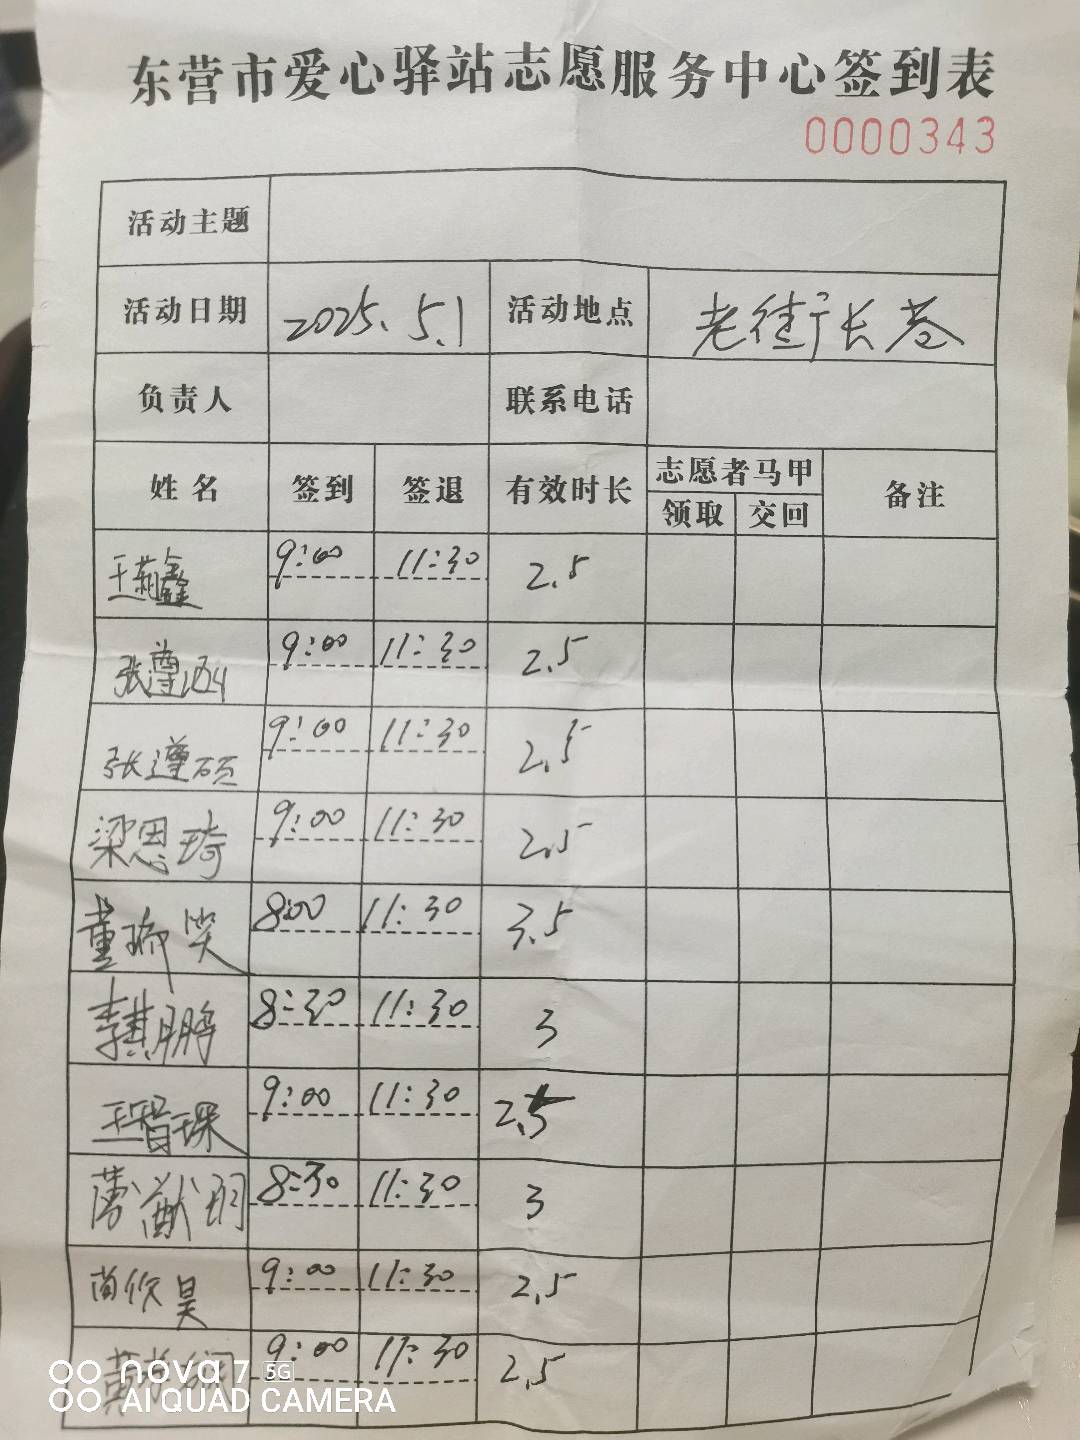 东营市爱心驿站志愿服务中心签到表
0000343
活动主题
活动日期 2025.5.1 活动地点 老街长巷
负责人 联系电话
姓名 签到 签退 有效时长 志愿者马甲 备注
领取 交回
王 鑫 9:00 11:30 2.5
张尊 9:00 11:30 2.5
张遵硕 9:00 11:30 2.5
梁恩琦 9:00 11:30 2.5
董瑞笑 8:00 11:30 3.5
李其鹏 8:30 11:30 3
王智琛 9:00 11:30 2.5
薄猷玥 8:30 11:30 3
苗欣昊 9:00 11:30 2.5
黄 9:00 11:30 2.5
nova 7 5G
AI QUAD CAMERA